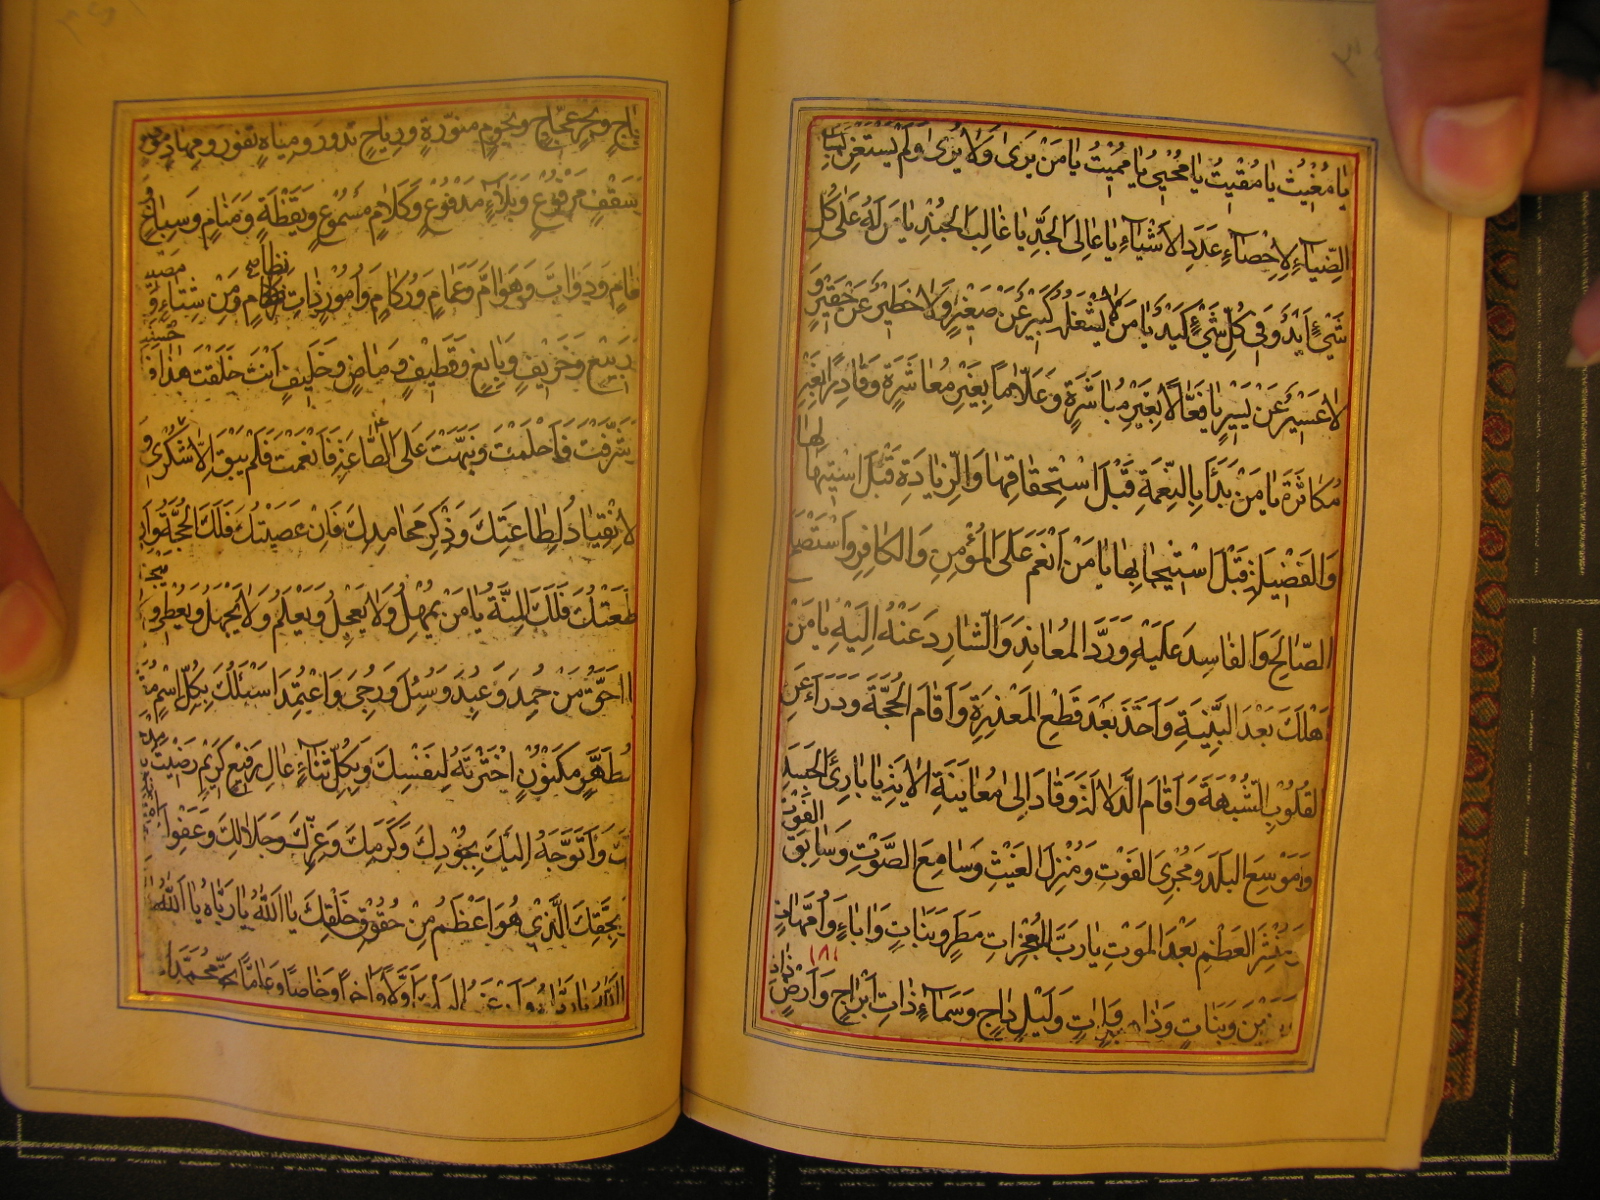 يا مُغيثُ يا مُقيتُ يا مُحْيى يا مُميتُ يا مَنْ يَرىٰ وَلا يُرىٰ وَلَمْ يَسْتَعِنْ
الضِّياءِ لِاِحْصاءِ عَدَدِ الاَشْياءِ يا عالِىَ الجَدِّ يا غالِبَ الجُنْدِ يا مَنْ لَهُ عَلىٰ كُلِّ
شَىْءٍ اَيْدٌ وَفى كُلِّ شَىْءٍ كَيْدٌ يا مَنْ لا يَشْغَلُهُ كَبيرٌ عَنْ صَغيرٍ وَلا خَطيرٌ عَنْ حَقيرٍ وَ
لا عَسيرٌ عَنْ يَسيرٍ يا فَعّالاً بِغَيْرِ مُباشَرَةٍ وَعَلّاماً بِغَيْرِ مُعاشَرَةٍ وَقادِراً بِغَيْرِ
مُكاثَرَةٍ يا مَنْ بَدَأَ بِالنِّعْمَةِ قَبْلَ اسْتِحْقاقِها وَالزِّيادَةِ قَبْلَ
وَالفَضيلَةِ قَبْلَ اسْتيجابِها يا مَنْ اَنْعَمَ عَلَى المُؤْمِنِ وَالكافِرِ
الصّالِحِ وَالفاسِدِ عَلَيْهِ وَرَدَّ المُعانِدَ وَالشّارِدَ عَنْهُ اِلَيْهِ يا مَنْ
اَهْلَكَ بَعْدَ البَيِّنَةِ وَاَخَذَ بَعْدَ قَطْعِ المَعْذِرَةِ وَاَقامَ الحُجَّةَ وَدَرَأَ عَنِ
القُلُوبِ الشُّبْهَةَ وَاَقامَ الدَّلالَةَ وَقادَ اِلىٰ مُعايَنَةِ الآيَةِ يا بارِئَ الجَسَدِ
وَمُوسِعَ البَلَدِ وَمُجْرِىَ القُوتِ وَمُنْزِلَ الغَيْثِ وَسامِعَ الصَّوْتِ وَسابِقَ الفَوْتِ
وَمُنْشِرَ العَظْمِ بَعْدَ المَوْتِ يا رَبَّ المُعْجِزاتِ مَطَرٍ وَنَباتٍ وَاٰباءٍ وَاُمَّهاتٍ
١٨١
وَبَنينَ وَبَناتٍ وَلَيْلٍ داجٍ وَسَماءٍ ذاتِ اَبْراجٍ وَاَرْضٍ ذاتِ
وَبَحْرٍ عَجّاجٍ وَنُجُومٍ مُنَوَّرَةٍ وَرِياحٍ تَدُورُ وَمِياهٍ تَفُورُ وَمِهادٍ مَوْضُوعٍ
وَسَقْفٍ مَرْفُوعٍ وَبَلاءٍ مَدْفُوعٍ وَكَلامٍ مَسْمُوعٍ وَيَقَظَةٍ وَمَنامٍ وَسِباعٍ
وَدَوابَّ وَهَوامَّ وَغَمامٍ وَرُكامٍ وَاُمُورٍ ذاتِ نِظامٍ وَمِنْ شِتاءٍ وَ مَصيفٍ
رَبيعٍ وَخَريفٍ وَيانِعٍ وَقَطيفٍ وَماضٍ وَخَليفٍ اَنْتَ خَلَقْتَ هٰذا
شَرَّفْتَ فَاَحْلَمْتَ وَنَبَّهْتَ عَلَى الطّاعَةِ فَاَنْعَمْتَ فَلَمْ يَبْقَ اِلّا شُكْرى وَ
الاِنْقِيادُ لِطاعَتِكَ وَذِكْرِ مَحامِدِكَ فَاِنْ عَصَيْتُكَ فَلَكَ الحُجَّةُ وَاِنْ
اَطَعْتُكَ فَلَكَ المِنَّةُ يا مَنْ يُمْهِلُ وَلا يَعْجَلُ وَيَعْلَمُ وَلا يَجْهَلُ وَيُعْطى وَ
يا اَحَقَّ مَنْ حُمِدَ وَعُبِدَ وَسُئِلَ وَرُجِىَ وَاعْتُمِدَ اَسْئَلُكَ بِكُلِّ اسْمٍ
مُطَهَّرٍ مَكْنُونٍ اخْتَرْتَهُ لِنَفْسِكَ وَبِكُلِّ ثَناءٍ عالٍ رَفيعٍ كَريمٍ رَضيتَ
وَاَتَوَجَّهُ اِلَيْكَ بِجُودِكَ وَكَرَمِكَ وَعِزِّكَ وَجَلالِكَ وَعَفْوِكَ
بِحَقِّكَ الَّذى هُوَ اَعْظَمُ مِنْ حُقُوقِ خَلْقِكَ يا اَللّٰهُ يا رَبّاهُ يا اَللّٰهُ
اَوَّلاً وَاٰخِراً وَخاصّاً وَعامّاً بِحَقِّ مُحَمَّدٍ